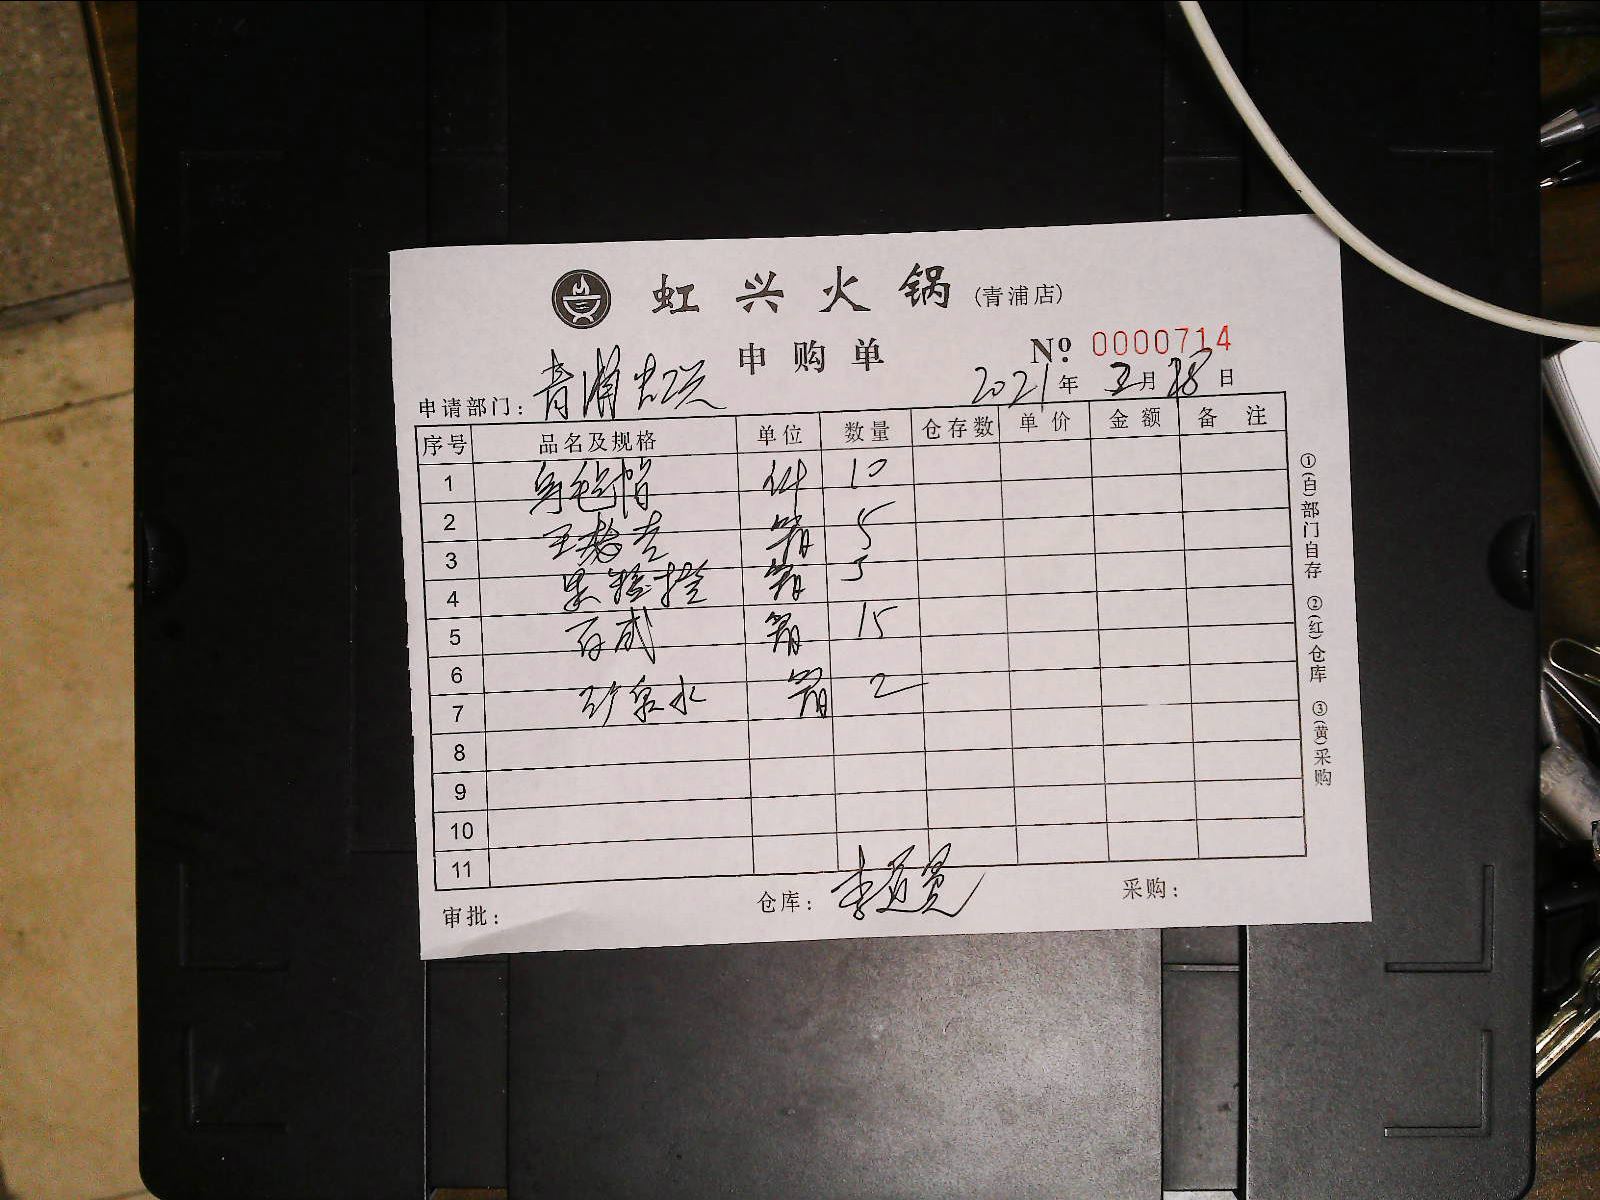 虹兴火锅(青浦店)
申购单 Nº: 0000714
申请部门: 青浦 2021年 月28日
序号 品名及规格 单位 数量 仓存数 单价 金额 备注
1 乌毡帽 件 10
2 王老吉 箱 5
3 果粒橙 箱 5
4
5 百威 箱 15
6
7 矿泉水 箱 2
8
9
10
11
审批: 仓库: 李道宽 采购:
①(白)部门自存 ②(红)仓库 ③(黄)采购